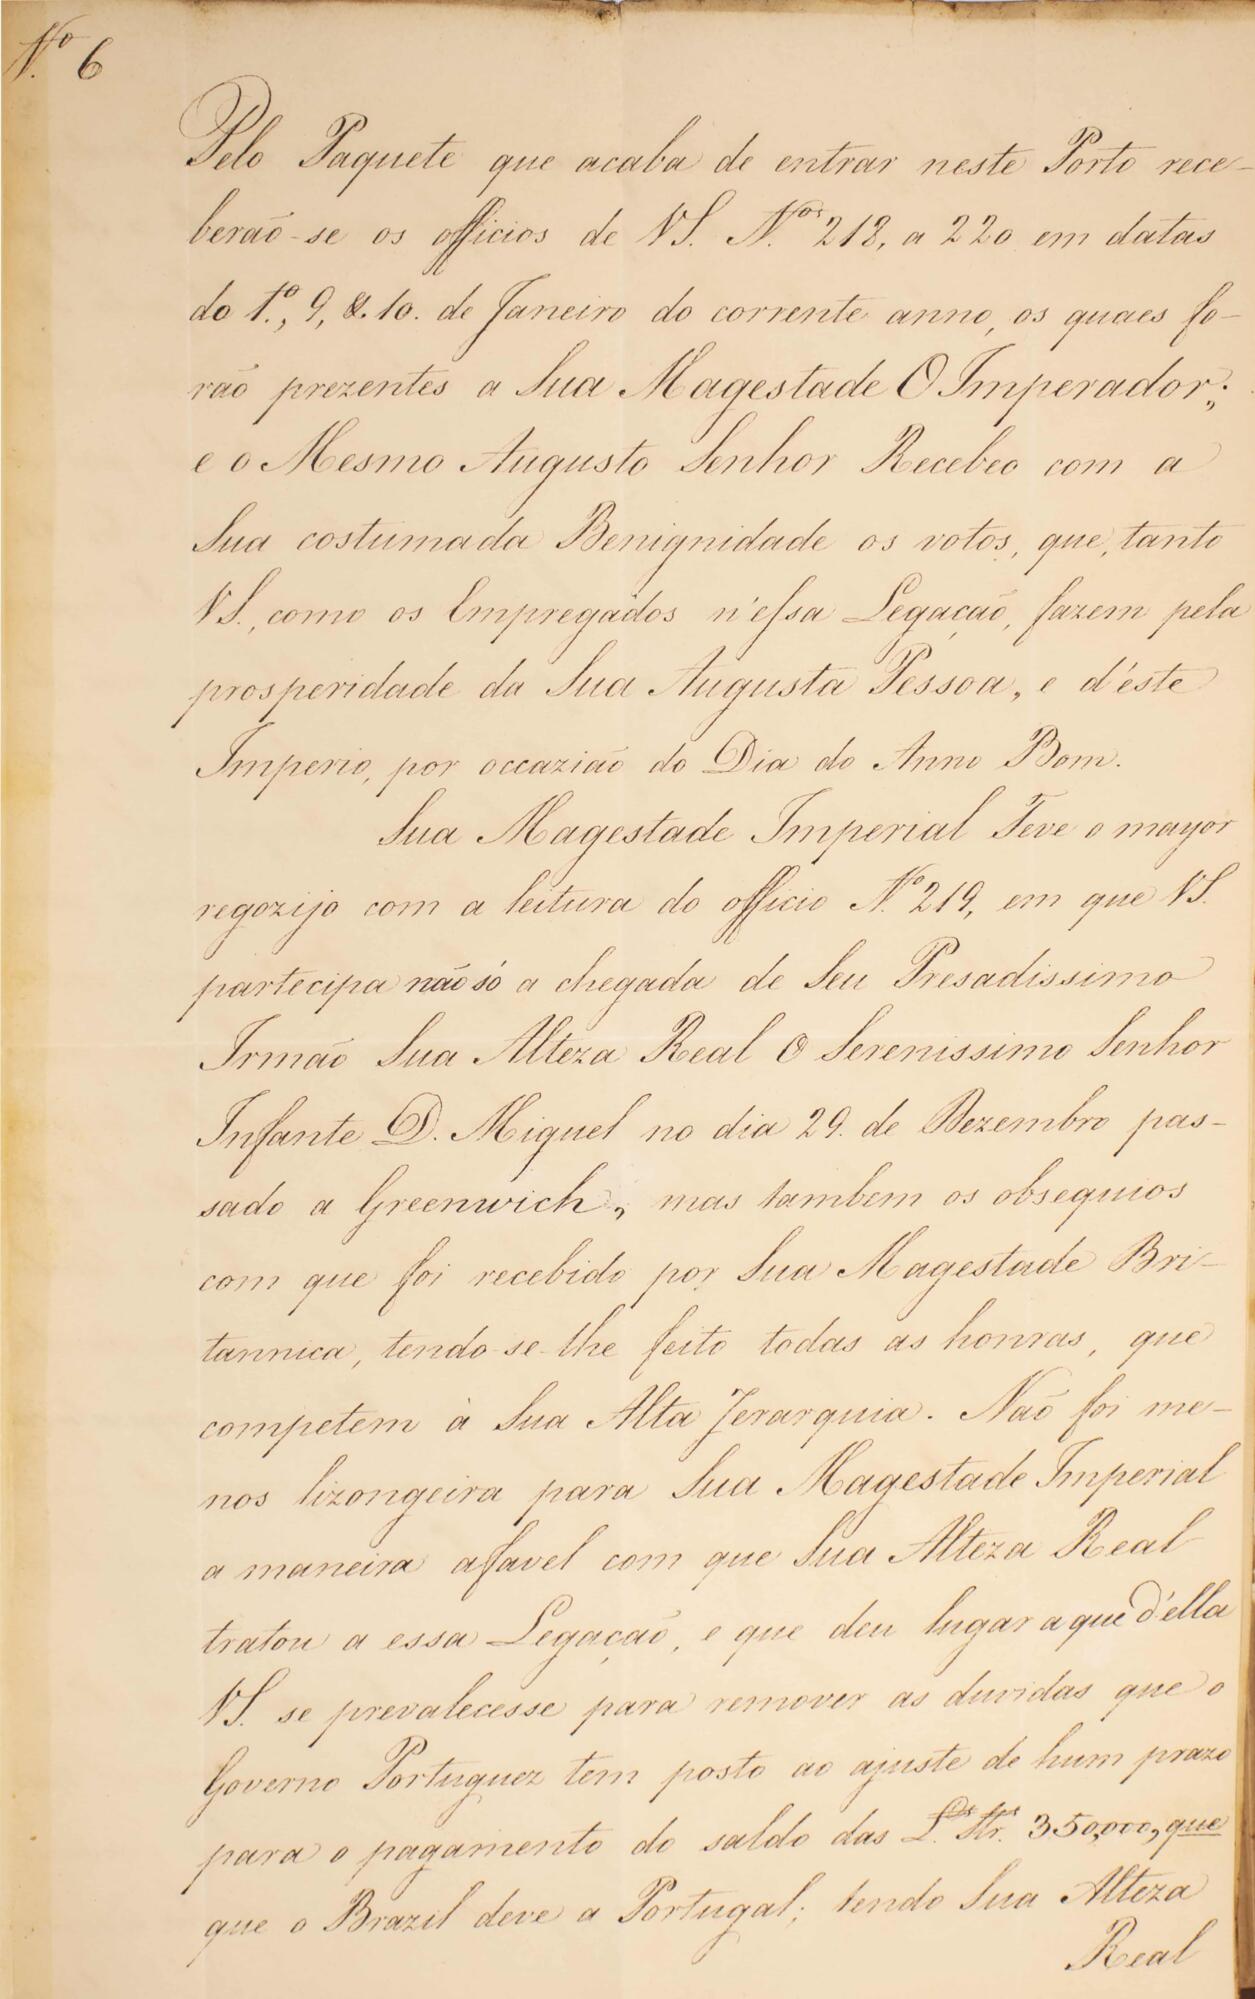 Nº 6
Pelo Paquete que acaba de entrar neste Porto rece-
berão-se os officios de VS. N.os 218, a 220 em datas
do 1.º, 9, & 10. de Janeiro do corrente anno, os quaes fo-
rão prezentes a Sua Magestade O Imperador;
e o Mesmo Augusto Senhor Recebeo com a
Sua costumada Benignidade os votos, que, tanto
VS., como os Empregados n'essa Legação, fazem pela
prosperidade da Sua Augusta Pessoa, e d'éste
Imperio, por occazião do Dia do Anno Bom.
Sua Magestade Imperial Teve o mayor
regozijo com a leitura do officio Nº 219, em que VS.
partecipa não só a chegada de Seu Presadissimo
Irmão Sua Alteza Real O Serenissimo Senhor
Infante D. Miguel no dia 29. de Dezembro pas-
sado a Greenwich, mas tambem os obsequios
com que foi recebido por Sua Magestade Bri-
tannica, tendo-se-lhe feito todas as honras, que
competem à Sua Alta Jerarquia. Não foi me-
nos lizongeira para Sua Magestade Imperial
a maneira afavel com que Sua Alteza Real
tratou a essa Legação, e que deu lugar a que d'ella
VS. se prevalecesse para remover as duvidas que o
Governo Portuguez tem posto ao ajuste de hum prazo
para o pagamento do saldo das L.as Str.s 350,000, que
que o Brazil deve a Portugal; tendo Sua Alteza
Real